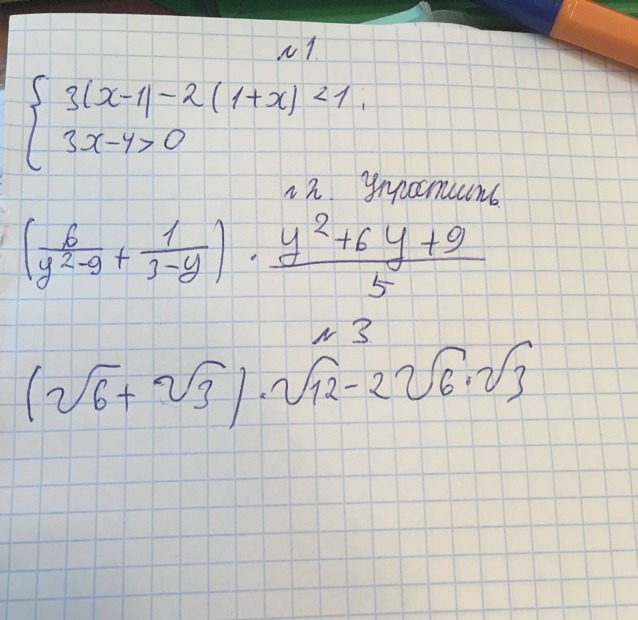 №1
{ 3(x-1)-2(1+x)<1;
3x-4>0
№2. Упростить
(6/(y²-9) + 1/(3-y)) · (y²+6y+9)/5
№3
(√6+√3)·√12-2√6·√3